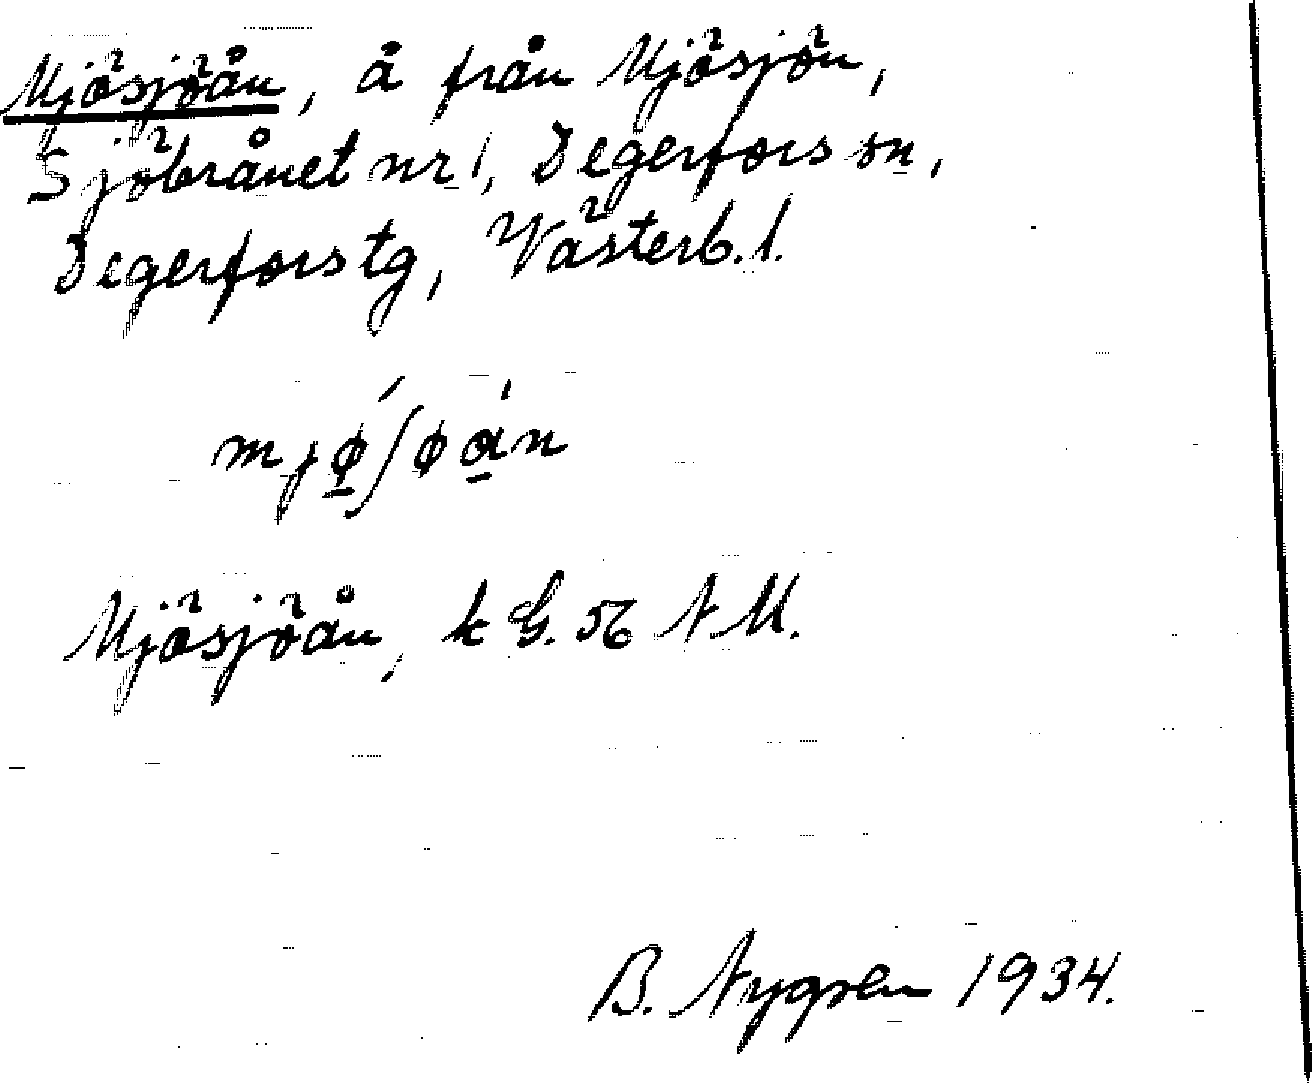 Mjösjöån, å från Mjösjön,
Sjöbrånet nr 1, Degerfors sn,
Degerfors tg, Västerb. l.
mjǿ̱ʃøά̱n
Mjösjöån, k G. 56 N M.
B. Nygren 1934.